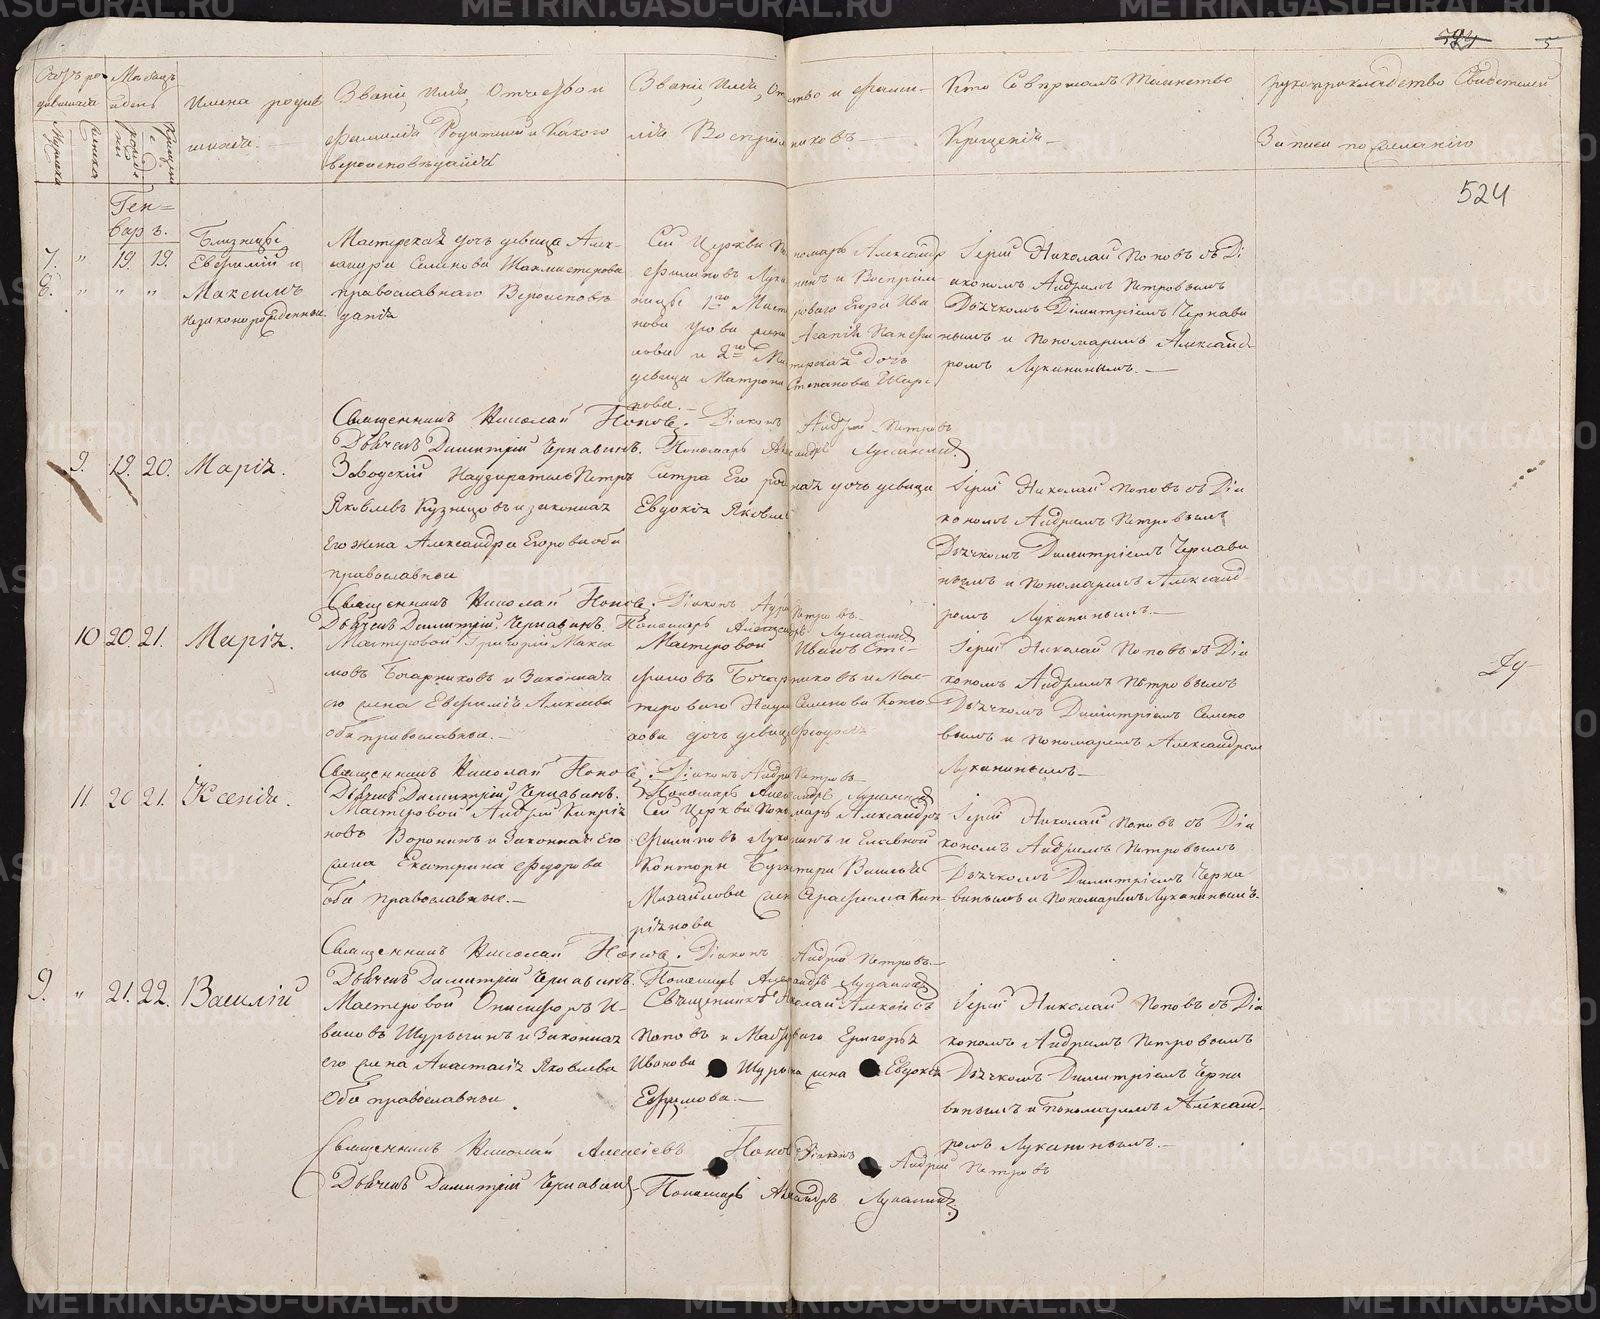 Мѣсяцъ
и день
Имена родив
шихся.
Званіе, Имя, Отчество и
фамилія Родителей и Какого
вероисповѣданія
Званіе, Имя, Отчество и фами-
лія Воспріемниковъ
Кто Совершалъ Таинство
Крещенія
рукоприкладство Свидетелей
Записи по желанію
524
5
524
Ген=
варь.
7. " 19. 19.
8. " " "
Близнецы
Евфимій и
Максимъ
незаконорожденные.
Мастерская дочь девица Алек-
сандра Семенова
православнаго Вероисповѣ
данія
Сей Церкви Пономарь Александръ
Филиповъ Луканинъ и Воспріем
ницы 1го Мастероваго Егора Ива
нова жена Агапія
и 2й Мастерская дочь
девица Матрона Степанова
Іерей Николай Поповъ съ Ді
акономъ Андреемъ Петровымъ
Дьячкомъ Димитріемъ Чернави
нымъ и Пономаремъ Александ-
ромъ Луканинымъ.
Священникъ Николай Поповъ. Діаконъ Андрей Петровъ
Дьячекъ Димитрій Чернавинъ. Пономарь Александръ Луканинъ
9. 19. 20. Марія.
Заводскій Надзиратель Петръ
Яковлевъ Кузнецовъ и законная
Его жена Александра Егорова оба
православныи
Сестра Его родная дочь девица
Евдокія Яковлева
Іерей Николай Поповъ съ Діа
кономъ Андреемъ Петровымъ
Дьячкомъ Димитріемъ Чернави
нымъ и Пономаремъ Александ-
ромъ Луканинымъ.
Священникъ Николай Поповъ. Діаконъ Андрей Петровъ.
Дьячекъ Димитрій Чернавинъ. Пономарь Александръ Луканинъ
10 20. 21. Марія.
Мастеровой Григорій Макси
мовъ Бочарниковъ и Законная
его жена Евфимія Алексеева
оба православныи.
Мастеровой Иванъ Сте-
Бочарниковъ и Мас-
тероваго Семенова
дочь девица Феодосія
Іерей Николай Поповъ съ Діа
кономъ Андреемъ Петровымъ
Дьячкомъ Димитріемъ Семено
вымъ и Пономаремъ Александромъ
Луканинымъ
Священникъ Николай Поповъ. Діаконъ Андрей Петровъ
Дьячекъ Димитрій Чернавинъ. Пономарь Александръ Луканинъ
11. 20 21. Ксенія.
Мастеровой Андрей Кипрія
новъ Воронинъ и Законная Его
жена Екатерина Федорова
оба православные.
Сей Церкви Пономарь Александръ
Филиповъ Луканинъ и Главной
Конторы
Михайлова жена Серафима Кип-
ріянова
Іерей Николай Поповъ съ Діа
кономъ Андреемъ Петровымъ
Дьячкомъ Димитріемъ Черна
винымъ и Пономаремъ Луканинымъ.
Священникъ Николай Поповъ. Діаконъ Андрей Петровъ
Дьячекъ Димитрій Чернавинъ. Пономарь Александръ Луканинъ
9. " 21. 22. Василій
Мастеровой Онисифоръ И-
вановъ Шурыгинъ и Законная
его жена Анастасія Яковлева
Оба православныи
Священникъ Николай Алексіевъ
Поповъ и Мастероваго Григорья
Иванова жена Евдокія
Ефимова.
Іерей Николай Поповъ съ Діа
кономъ Андреемъ Петровымъ
Дьячкомъ Димитріемъ Черна
винымъ и Пономаремъ Александ-
ромъ Луканинымъ.
Священникъ Николай Алексіевъ Поповъ Діаконъ Андрей Петровъ
Дьячекъ Димитрій Чернавинъ Пономарь Александръ Луканинъ
METRIKI.GASO-URAL.RU